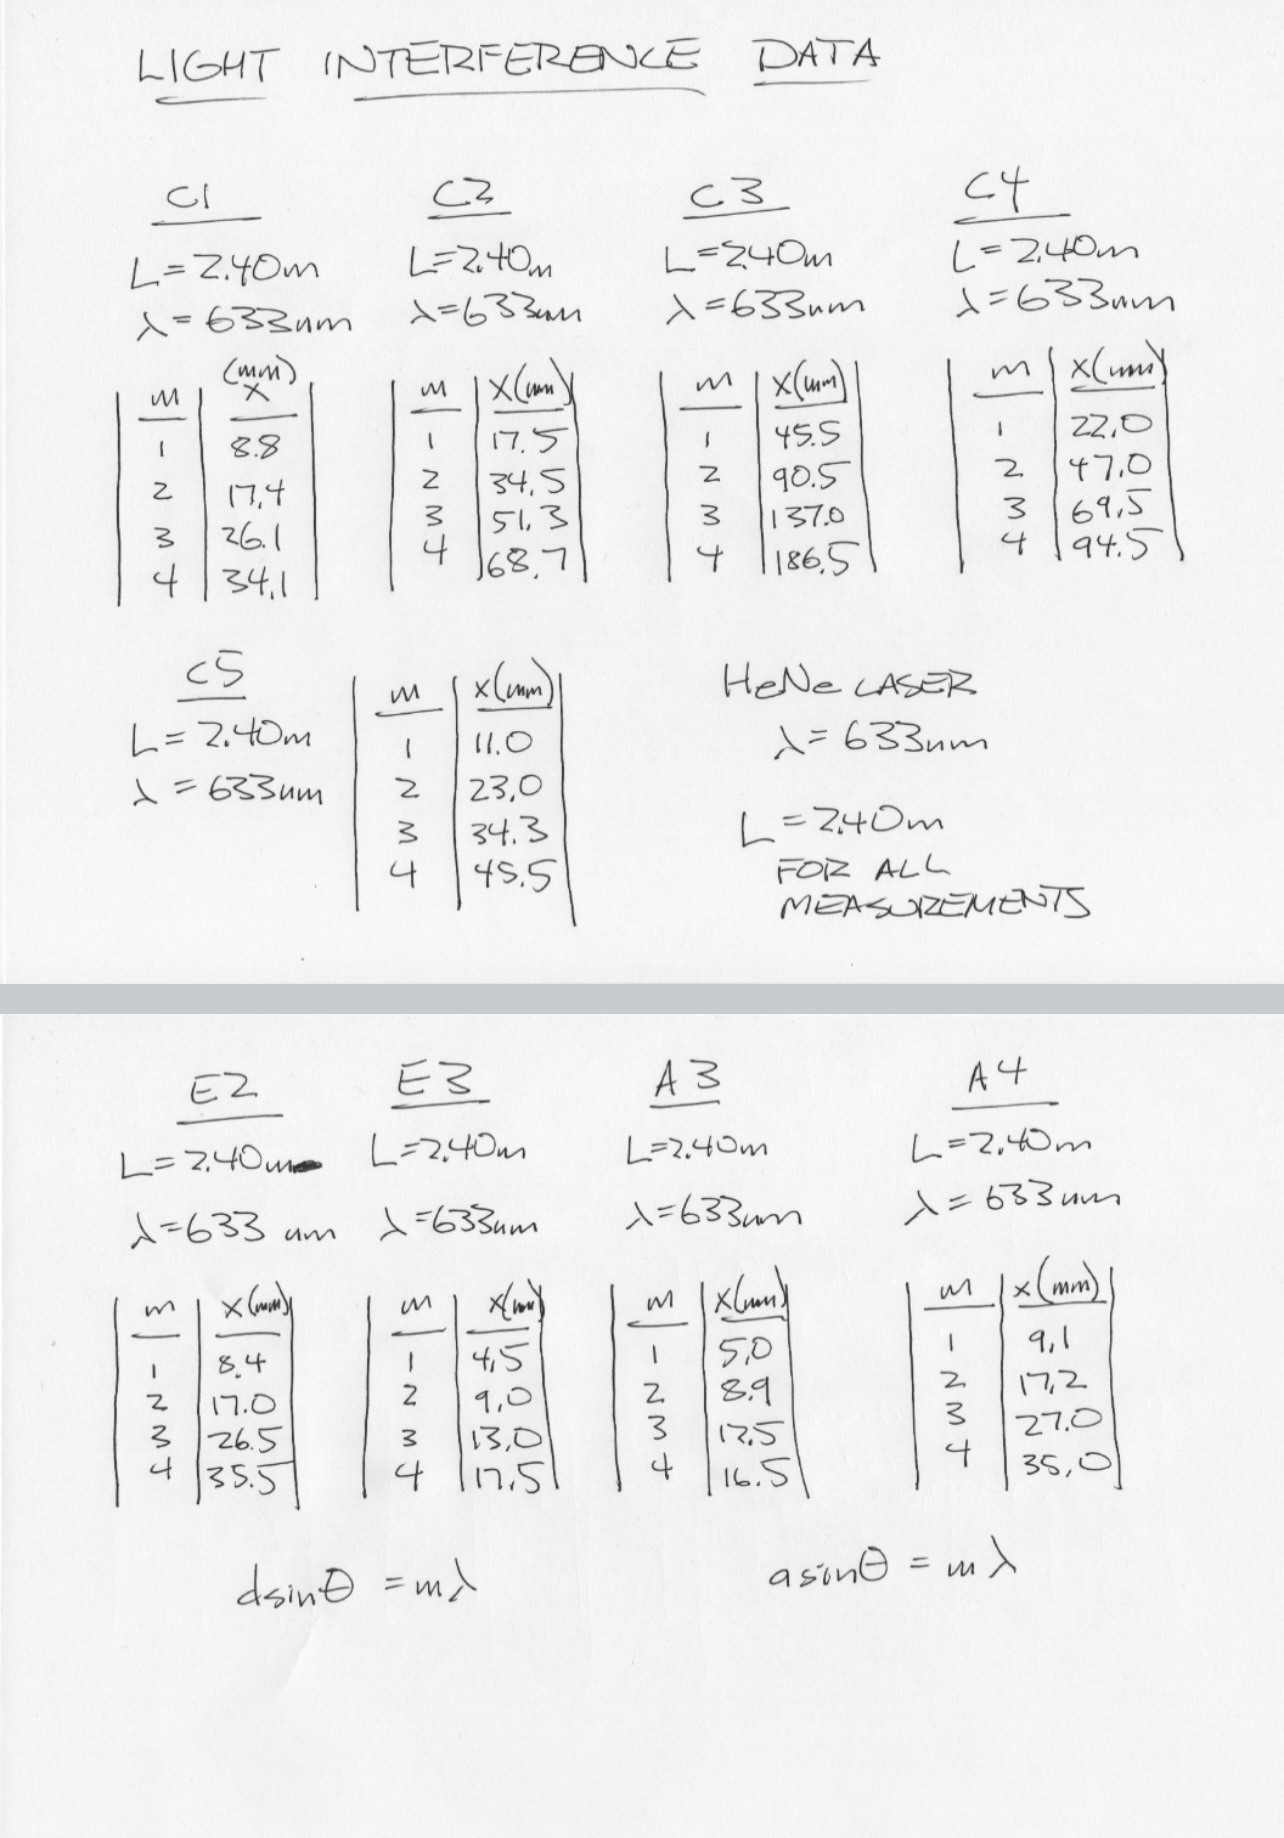 LIGHT INTERFERENCE DATA
C1
L = 2.40m
λ = 633nm
(mm)
m x
1 8.8
2 17.4
3 26.1
4 34.1
C2
L=2.40m
λ=633nm
m x(mm)
1 17.5
2 34.5
3 51.3
4 68.7
C3
L=2.40m
λ=633nm
m x(mm)
1 45.5
2 90.5
3 137.0
4 186.5
C4
L=2.40m
λ=633nm
m x(mm)
1 22.0
2 47.0
3 69.5
4 94.5
C5
L= 2.40m
λ = 633nm
m x(mm)
1 11.0
2 23.0
3 34.3
4 45.5
HeNe LASER
λ= 633nm
L = 2.40m
FOR ALL
MEASUREMENTS
E2
L= 2.40m
λ=633 nm
m x(mm)
1 8.4
2 17.0
3 26.5
4 35.5
E3
L=2.40m
λ=633nm
m x(mm)
1 4.5
2 9.0
3 13.0
4 17.5
A3
L=2.40m
λ=633nm
m x(mm)
1 5.0
2 8.9
3 12.5
4 16.5
A4
L=2.40m
λ= 633nm
m x(mm)
1 9.1
2 17.2
3 27.0
4 35.0
dsinθ = mλ
asinθ = mλ